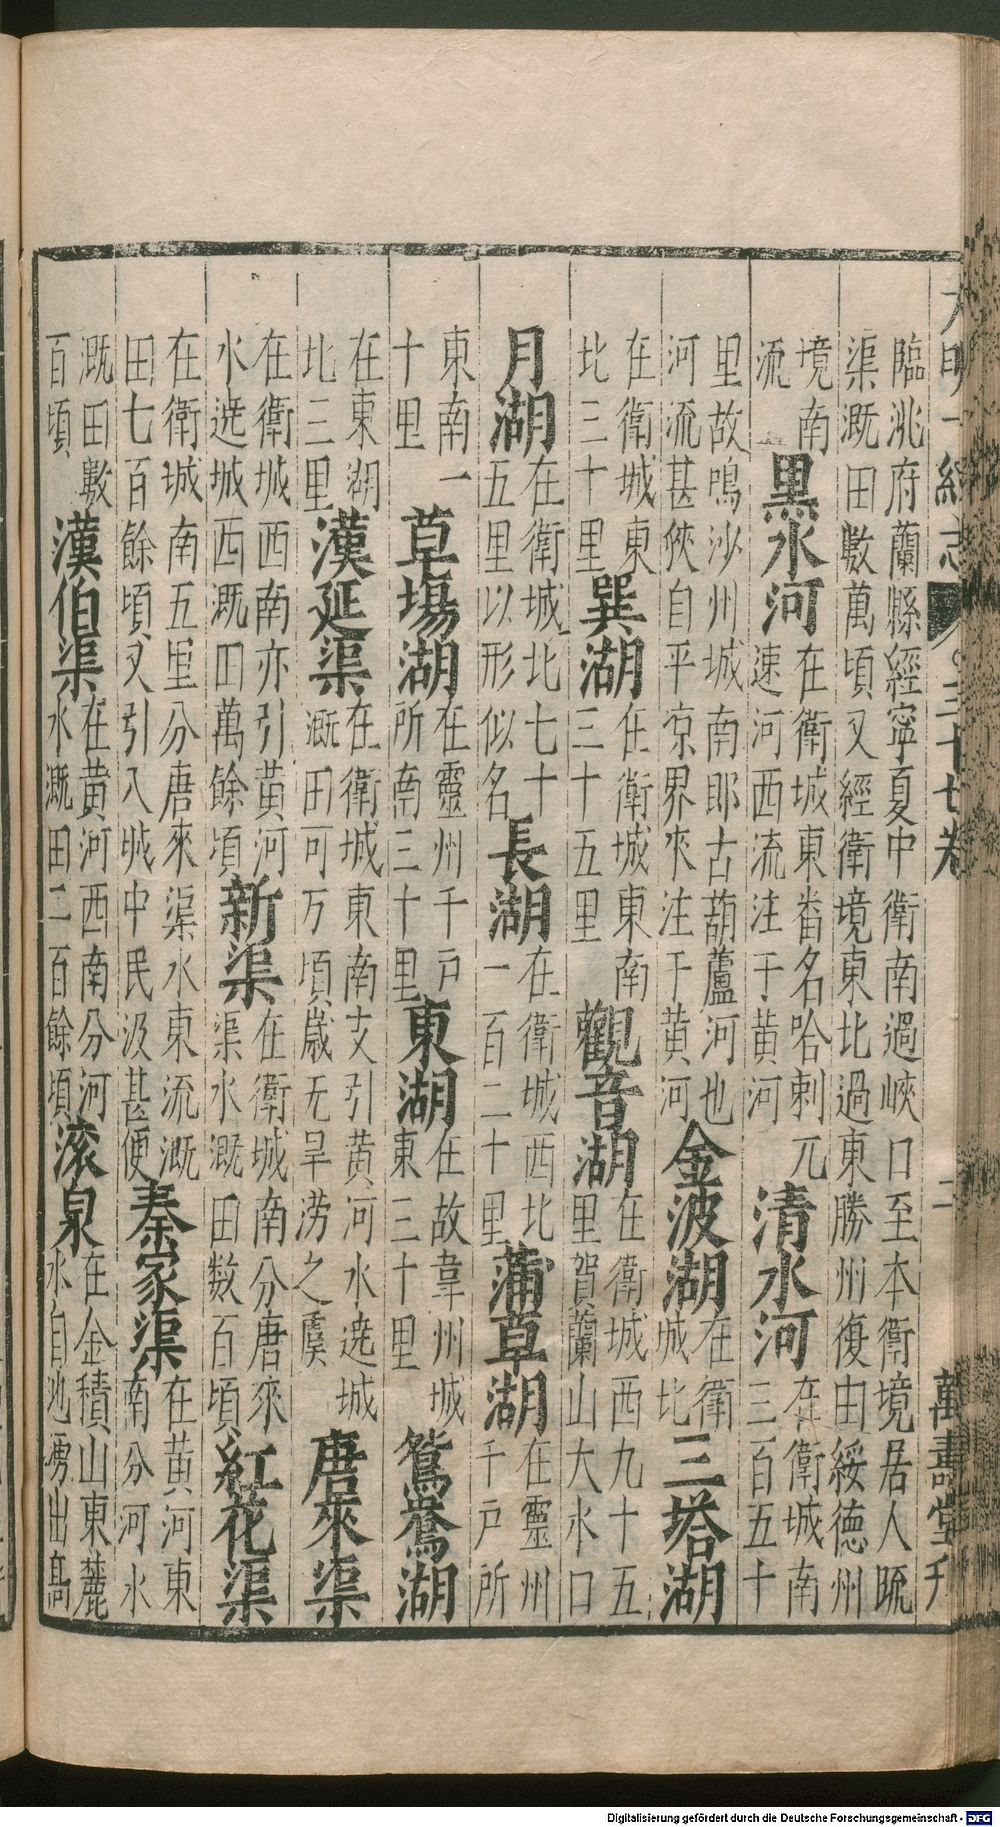 大明一統志 三十七卷 二 萬壽堂刊
臨洮府蘭縣經寧夏中衛南過峽口至本衛境居人䟽
渠溉田數萬頃又經衛境東北過東勝州復由綏德州
境南流黑水河在衛城東番名哈剌兀速河西流注于黃河清水河在衛城南三百五十
里故鳴沙州城南耶古葫蘆河也河流甚俠自平凉界來注于黃河金波湖在衛城北三塔湖
在衛城東北三十里巽湖在衛城東南三十五里觀音湖在衛城西九十五里賀蘭山大水口
月湖在衛城北七十五里以形似名長湖在衛城西北一百二十里蒲草湖在靈州千戶所
東南一十里草塲湖在靈州千戶所南三十里東湖在故韋州城東三十里鴛鴦湖
在東湖北三里漢延渠在衛城東南支引黃河水遶城溉田可万頃歲无旱澇之虞唐來渠
在衛城西南亦引黃河水遶城西溉田萬餘頃新渠在衛城南分唐來渠水溉田数百頃紅花渠
在衛城南五里分唐來渠水東流溉田七百餘頃又引入城中民汲甚便秦家渠在黃河東南分河水
溉田數百頃漢伯渠在黃河西南分河水溉田二百餘頃滾泉在金積山東麓水自地湧出高
Digitalisierung gefördert durch die Deutsche Forschungsgemeinschaft - DFG